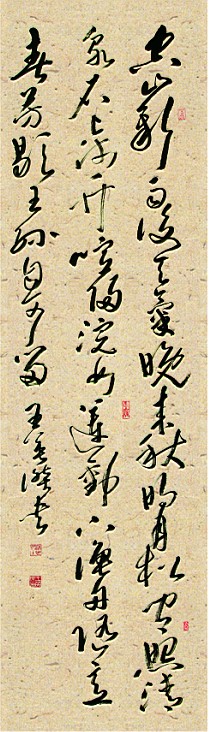 空山新雨後天氣晚来秋明月松間照清
泉石上流竹喧歸浣女蓮動下漁舟隨意
春芳歇王孫自可留 王